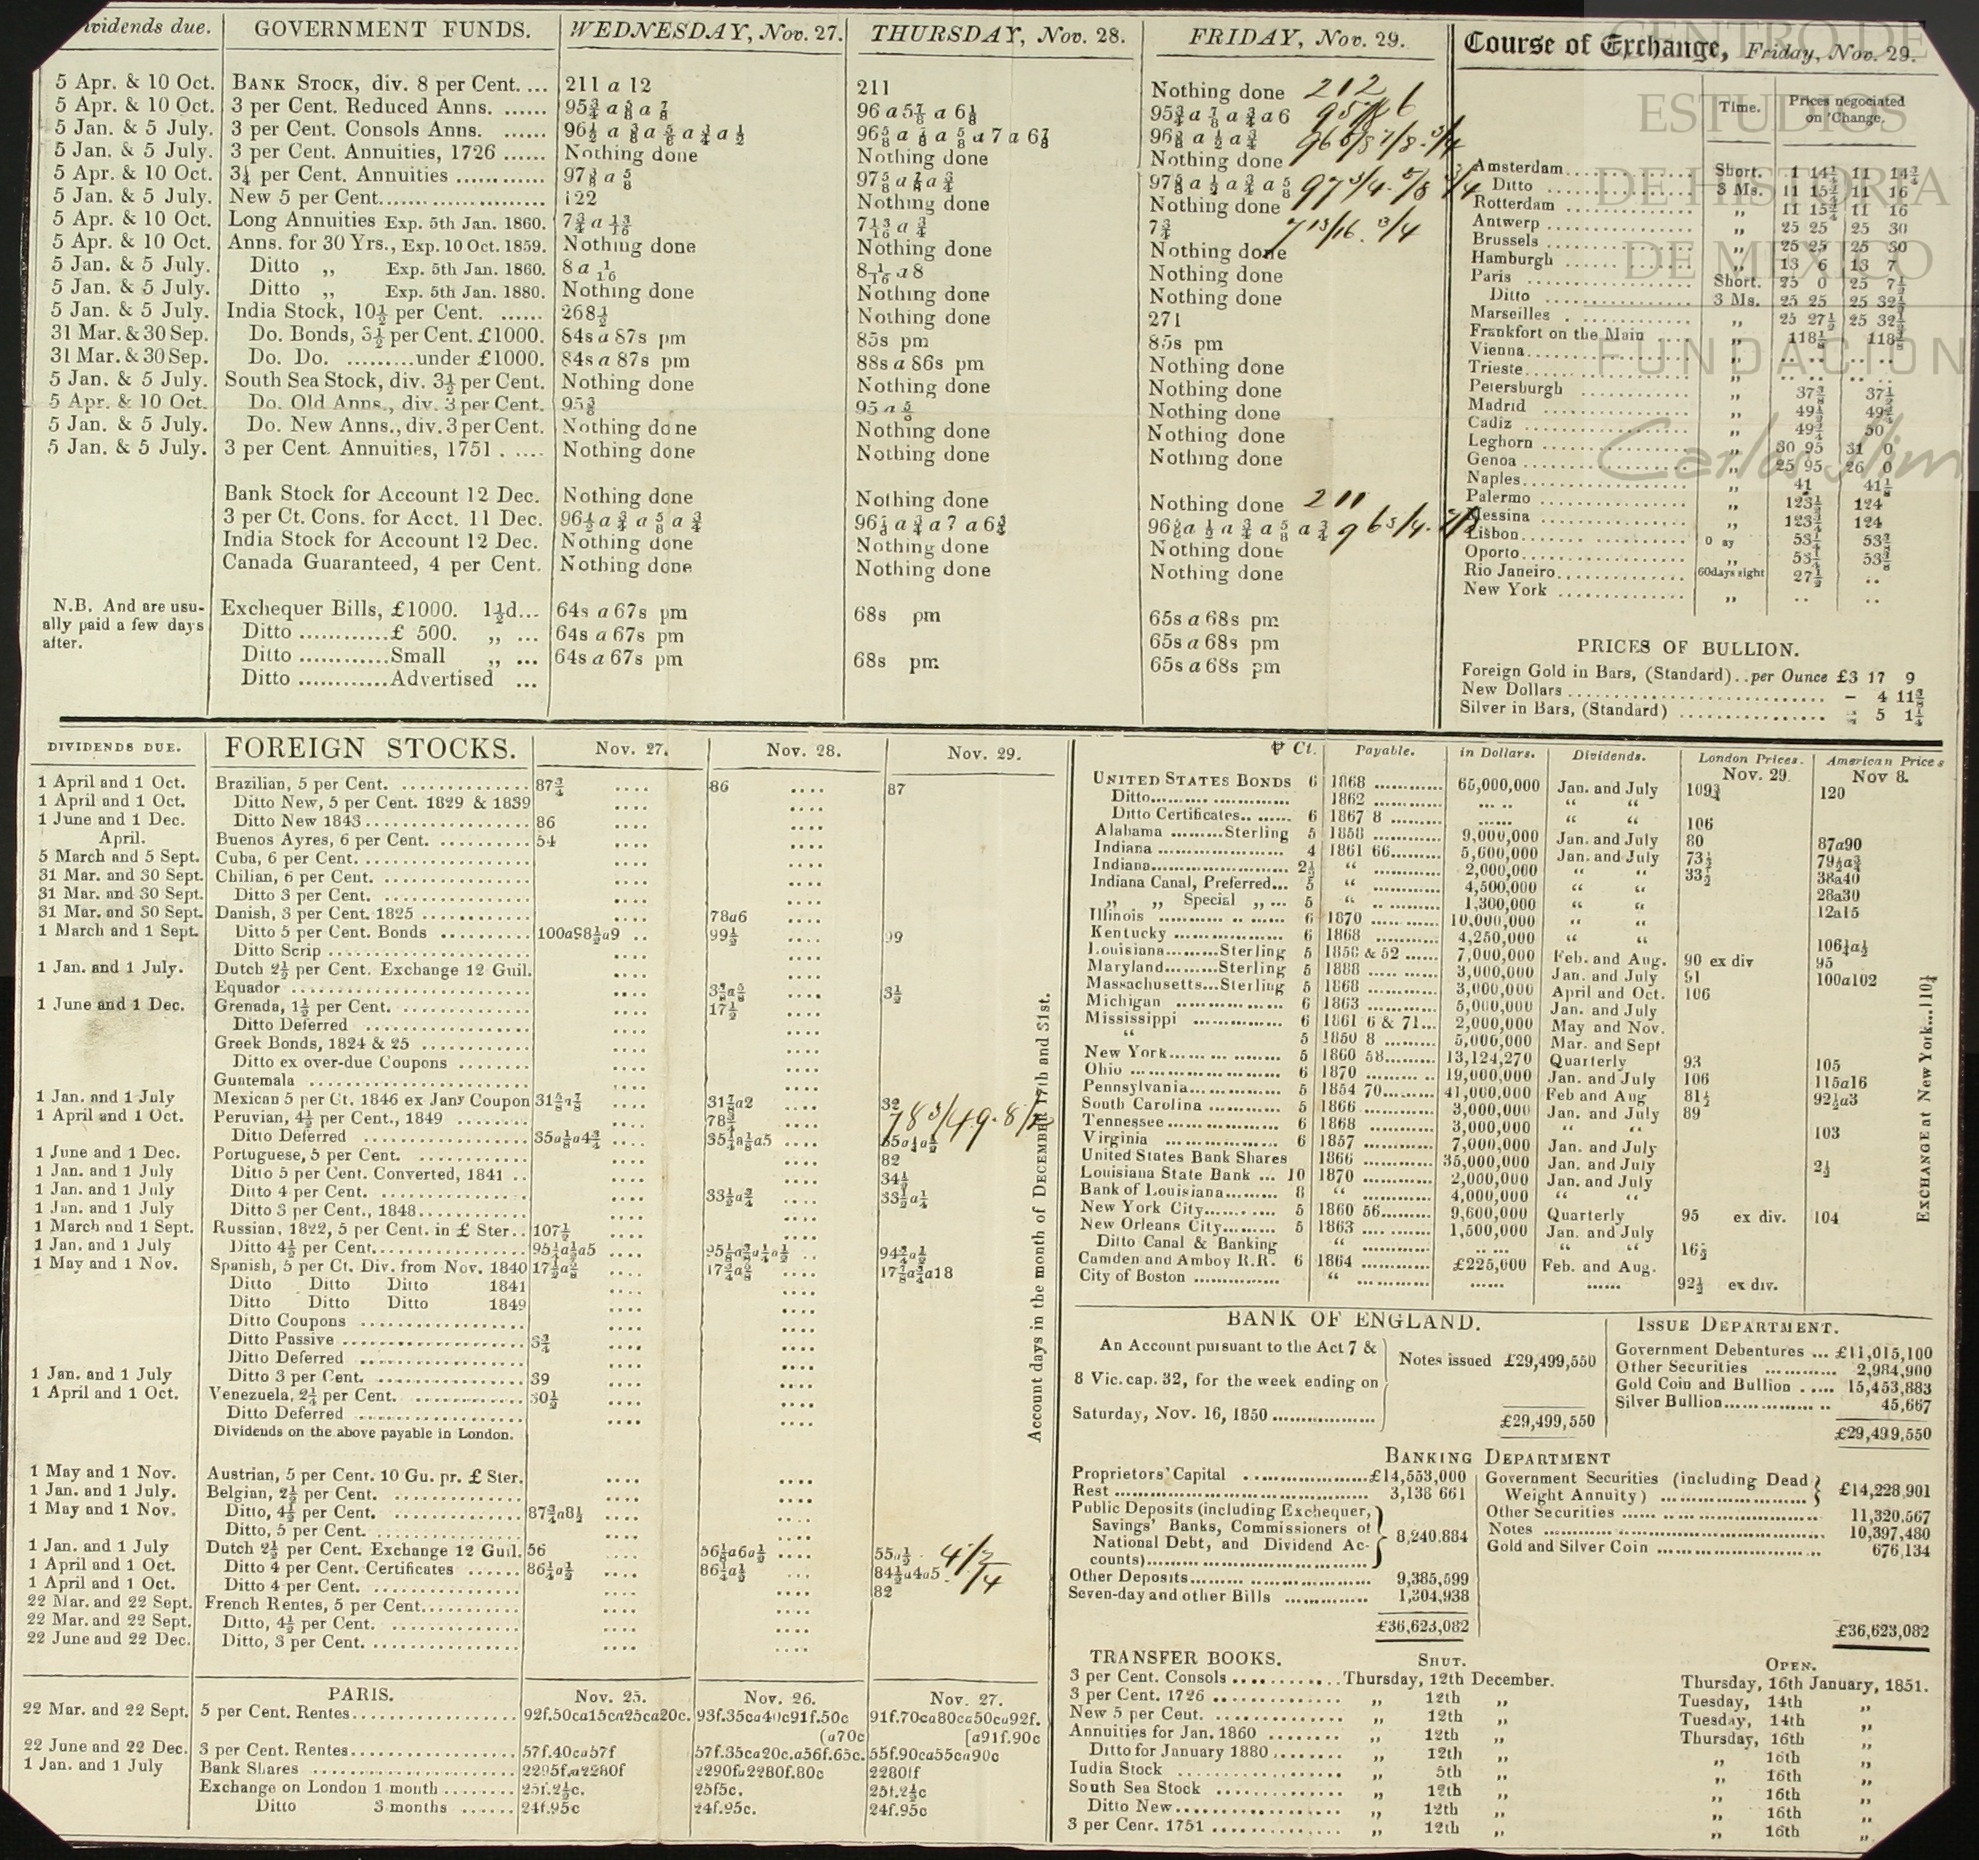 Dividends due. GOVERNMENT FUNDS. WEDNESDAY, Nov. 27. THURSDAY, Nov. 28. FRIDAY, Nov. 29.
5 Apr. & 10 Oct. BANK STOCK, div. 8 per Cent. ... 211 a 12 211 Nothing done 212
5 Apr. & 10 Oct. 3 per Cent. Reduced Anns. ...... 95¾ a ⅝ a ⅞ 96 a 5⅞ a 6⅛ 95¾ a ⅞ a ¾ a 6
5 Jan. & 5 July. 3 per Cent. Consols Anns. ...... 96½ a ⅜ a ⅝ a ¾ a ½ 96⅝ a ⅞ a ⅝ a 7 a 6⅞ 96⅜ a ½ a ¾
5 Jan. & 5 July. 3 per Cent. Annuities, 1726 ...... Nothing done Nothing done Nothing done
5 Apr. & 10 Oct. 3¼ per Cent. Annuities ............ 97⅜ a ⅝ 97⅝ a ⅞ a ¾ 97⅝ a ½ a ¾ a ⅝ 97 3/4. 5/8 3/4
5 Jan. & 5 July. New 5 per Cent..................... 122 Nothing done Nothing done
5 Apr. & 10 Oct. Long Annuities Exp. 5th Jan. 1860. 7¾ a 13/16 7 13/16 a ¾ 7¾ 7 13/16. 3/4
5 Apr. & 10 Oct. Anns. for 30 Yrs., Exp. 10 Oct. 1859. Nothing done Nothing done Nothing done
5 Jan. & 5 July. Ditto „ Exp. 5th Jan. 1860. 8 a 1/16 8 1/16 a 8 Nothing done
5 Jan. & 5 July. Ditto „ Exp. 5th Jan. 1880. Nothing done Nothing done Nothing done
5 Jan. & 5 July. India Stock, 10½ per Cent. ...... 268½ Nothing done 271
31 Mar. & 30 Sep. Do. Bonds, 3½ per Cent. £1000. 84s a 87s pm 85s pm 85s pm
31 Mar. & 30 Sep. Do. Do. .........under £1000. 84s a 87s pm 88s a 86s pm Nothing done
5 Jan. & 5 July. South Sea Stock, div. 3½ per Cent. Nothing done Nothing done Nothing done
5 Apr. & 10 Oct. Do. Old Anns., div. 3 per Cent. 95⅜ 95 a ⅝ Nothing done
5 Jan. & 5 July. Do. New Anns., div. 3 per Cent. Nothing done Nothing done Nothing done
5 Jan. & 5 July. 3 per Cent. Annuities, 1751 ..... Nothing done Nothing done Nothing done
Bank Stock for Account 12 Dec. Nothing done Nothing done Nothing done 211
3 per Ct. Cons. for Acct. 11 Dec. 96½ a ¾ a ⅝ a ¾ 96⅞ a ¾ a 7 a 6¾ 96⅝ a ½ a ¾ a ⅝ a ¾
India Stock for Account 12 Dec. Nothing done Nothing done Nothing done
Canada Guaranteed, 4 per Cent. Nothing done Nothing done Nothing done
N.B. And are usually paid a few days after.
Exchequer Bills, £1000. 1½d... 64s a 67s pm 68s pm 65s a 68s pm
Ditto ............£ 500. „ ... 64s a 67s pm 65s a 68s pm
Ditto ............Small „ ... 64s a 67s pm 68s pm 65s a 68s pm
Ditto ............Advertised ...
Course of Exchange, Friday, Nov. 29.
Time. Prices negotiated on 'Change.
Amsterdam Short. 1 14¼ 11 14¾
Ditto 3 Ms. 11 15¾ 11 16
Rotterdam „ 11 15¾ 11 16
Antwerp „ 25 25 25 30
Brussels „ 25 25 25 30
Hamburgh „ 13 6 13 7
Paris Short. 25 0 25 7½
Ditto 3 Ms. 25 25 25 32½
Marseilles „ 25 27½ 25 32½
Frankfort on the Main „ 118⅛ 118
Vienna „ .. .. .. ..
Trieste „ .. .. .. ..
Petersburgh „ 37⅜ 37½
Madrid „ 49½ 49
Cadiz „ 49¾ 50
Leghorn „ 30 95 31 0
Genoa „ 25 95 26 0
Naples „ 41 41⅛
Palermo „ 123½ 124
Messina „ 123¾ 124
Lisbon 53¼ 53
Oporto „ 53
Rio Janeiro 60 days sight 27½ ..
New York „ .. ..
PRICES OF BULLION.
Foreign Gold in Bars, (Standard) ..per Ounce £3 17 9
New Dollars – 4 11
Silver in Bars, (Standard) 5 1¼
CENTRO DE
ESTUDIOS
DE HISTORIA
DE MEXICO
FUNDACIÓN
Carlos Slim
DIVIDENDS DUE. FOREIGN STOCKS. Nov. 27. Nov. 28. Nov. 29.
1 April and 1 Oct. Brazilian, 5 per Cent. 87¾ 86 87
1 April and 1 Oct. Ditto New, 5 per Cent. 1829 & 1839
1 June and 1 Dec. Ditto New 1843 86
April. Buenos Ayres, 6 per Cent. 54
5 March and 5 Sept. Cuba, 6 per Cent.
31 Mar. and 30 Sept. Chilian, 6 per Cent.
31 Mar. and 30 Sept. Ditto 3 per Cent.
31 Mar. and 30 Sept. Danish, 3 per Cent. 1825 78a6
1 March and 1 Sept. Ditto 5 per Cent. Bonds 100a98½a9 99½ 99
Ditto Scrip
1 Jan. and 1 July. Dutch 2½ per Cent. Exchange 12 Guil.
Equador 3⅜a⅝ 3½
1 June and 1 Dec. Grenada, 1½ per Cent. 17½
Ditto Deferred
Greek Bonds, 1824 & 25
Ditto ex over-due Coupons
Guatemala
1 Jan. and 1 July Mexican 5 per Ct. 1846 ex Jany Coupon 31⅝a⅞ 31⅞a2 32
1 April and 1 Oct. Peruvian, 4½ per Cent., 1849 78¾
Ditto Deferred 35a⅛a4¾ 35¼a⅛a5 35a¼a½
1 June and 1 Dec. Portuguese, 5 per Cent. 82
1 Jan. and 1 July Ditto 5 per Cent. Converted, 1841 34½
1 Jan. and 1 July Ditto 4 per Cent. 33½a¾ 33½a¼
1 Jan. and 1 July Ditto 3 per Cent., 1848
1 March and 1 Sept. Russian, 1822, 5 per Cent. in £ Ster. 107½
1 Jan. and 1 July Ditto 4½ per Cent. 95¼a½a5 94¾a½
1 May and 1 Nov. Spanish, 5 per Ct. Div. from Nov. 1840 17½a⅝ 17¾a⅝ 17⅞a¾a18
Ditto Ditto Ditto 1841
Ditto Ditto Ditto 1849
Ditto Coupons
Ditto Passive 3¾
Ditto Deferred
1 Jan. and 1 July Ditto 3 per Cent. 39
1 April and 1 Oct. Venezuela, 2¼ per Cent. 30½
Ditto Deferred
Dividends on the above payable in London.
1 May and 1 Nov. Austrian, 5 per Cent. 10 Gu. pr. £ Ster.
1 Jan. and 1 July. Belgian, 2½ per Cent.
1 May and 1 Nov. Ditto, 4½ per Cent. 87¾a8½
Ditto, 5 per Cent.
1 Jan. and 1 July Dutch 2½ per Cent. Exchange 12 Guil. 56 56⅛a6a½ 55a½
1 April and 1 Oct. Ditto 4 per Cent. Certificates 86¼a½ 86¼a½ 84½a4a5
1 April and 1 Oct. Ditto 4 per Cent. 82
22 Mar. and 22 Sept. French Rentes, 5 per Cent.
22 Mar. and 22 Sept. Ditto, 4½ per Cent.
22 June and 22 Dec. Ditto, 3 per Cent.
PARIS. Nov. 25. Nov. 26. Nov. 27.
22 Mar. and 22 Sept. 5 per Cent. Rentes 92f.50ca15ca25ca20c. 93f.35ca40c91f.50c 91f.70ca80ca50ca92f.
(a70c [a91f.90c
22 June and 22 Dec. 3 per Cent. Rentes 57f.40ca57f 57f.35ca20c.a56f.65c. 55f.90ca55ca90c
1 Jan. and 1 July Bank Shares 2295f.a2280f 2290fa2280f.80c 2280ff
Exchange on London 1 month 25f.2½c. 25f5c. 25f.2½c
Ditto 3 months 24f.95c 24f.95c. 24f.95c
Account days in the month of DECEMBER 17th and 31st.
⅌ Ct. Payable. in Dollars. Dividends. London Prices. Nov. 29. American Prices Nov 8.
UNITED STATES BONDS 6 1868 65,000,000 Jan. and July 109¾ 120
Ditto 1862 “ “
Ditto Certificates 6 1867 8 “ “ 106
Alabama Sterling 5 1858 9,000,000 Jan. and July 80 87a90
Indiana 4 1861 66 5,600,000 Jan. and July 73½ 79½a¾
Indiana 2½ “ 2,000,000 “ “ 33½ 38a40
Indiana Canal, Preferred 5 “ 4,500,000 “ “ 28a30
„ „ Special „ 5 “ 1,300,000 “ “ 12a15
Illinois 6 1870 10,000,000 “ “
Kentucky 6 1868 4,250,000 “ “ 106¼a½
Louisiana Sterling 5 1850 & 52 7,000,000 Feb. and Aug. 90 ex div 95
Maryland Sterling 5 1888 3,000,000 Jan. and July 91 100a102
Massachusetts Sterling 5 1868 3,000,000 April and Oct. 106
Michigan 6 1863 5,000,000 Jan. and July
Mississippi 6 1861 6 & 71 2,000,000 May and Nov.
“ 5 1850 8 5,000,000 Mar. and Sept
New York 5 1860 58 13,124,270 Quarterly 93 105
Ohio 6 1870 19,000,000 Jan. and July 106 115a16
Pennsylvania 5 1854 70 41,000,000 Feb and Aug 81½ 92½a3
South Carolina 5 1866 3,000,000 Jan. and July 89
Tennessee 6 1868 3,000,000 “ “ 103
Virginia 6 1857 7,000,000 Jan. and July
United States Bank Shares 1866 35,000,000 Jan. and July 2½
Louisiana State Bank 10 1870 2,000,000 Jan. and July
Bank of Louisiana 8 “ 4,000,000 “ “
New York City 5 1860 56 9,600,000 Quarterly 95 ex div. 104
New Orleans City 5 1863 1,500,000 Jan. and July
Ditto Canal & Banking “ “ “ 16
Camden and Amboy R.R. 6 1864 £225,000 Feb. and Aug.
City of Boston “ 92½ ex div.
EXCHANGE at New York...110¼
BANK OF ENGLAND.
An Account pursuant to the Act 7 &
8 Vic. cap. 32, for the week ending on
Saturday, Nov. 16, 1850
Notes issued £29,499,550
£29,499,550
ISSUE DEPARTMENT.
Government Debentures ... £11,015,100
Other Securities 2,984,900
Gold Coin and Bullion 15,453,883
Silver Bullion 45,667
£29,499,550
BANKING DEPARTMENT
Proprietors' Capital £14,553,000
Rest 3,138 661
Public Deposits (including Exchequer,
Savings' Banks, Commissioners of
National Debt, and Dividend Accounts) 8,240.884
Other Deposits 9,385,599
Seven-day and other Bills 1,304,938
£36,623,082
Government Securities (including Dead
Weight Annuity) £14,228,901
Other Securities 11,320,567
Notes 10,397,480
Gold and Silver Coin 676,134
£36,623,082
TRANSFER BOOKS. SHUT. OPEN.
3 per Cent. Consols Thursday, 12th December. Thursday, 16th January, 1851.
3 per Cent. 1726 „ 12th „ Tuesday, 14th „
New 5 per Cent. „ 12th „ Tuesday, 14th „
Annuities for Jan. 1860 „ 12th „ Thursday, 16th „
Ditto for January 1880 „ 12th „ „ 16th „
India Stock „ 5th „ „ 16th „
South Sea Stock „ 12th „ „ 16th „
Ditto New „ 12th „ „ 16th „
3 per Cenr. 1751 „ 12th „ „ 16th „